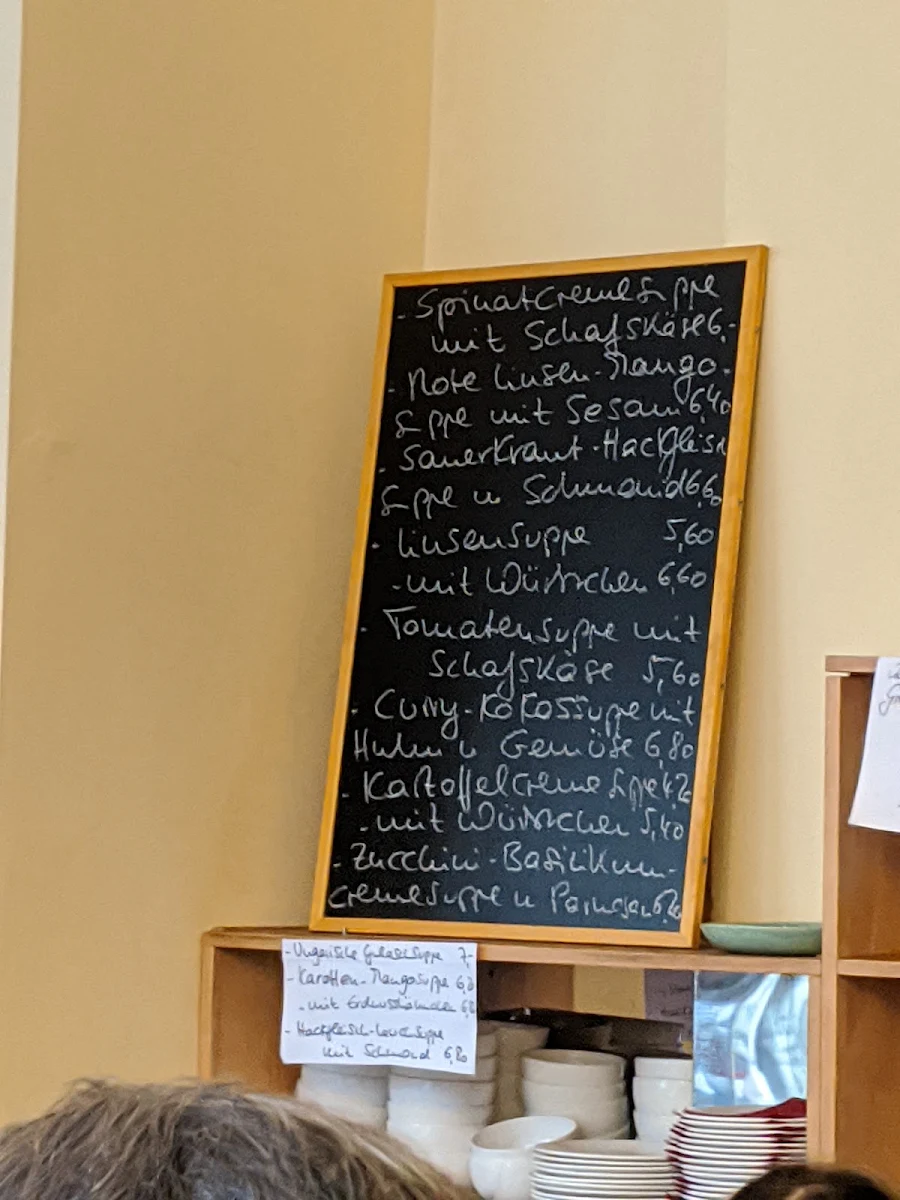 - Spinatcremesuppe
mit Schafskäse 6,-
- Rote Linsen-Mango-
suppe mit Sesam 6,40
- Sauerkraut-Hackfleisch
suppe u Schmand 6,60
- Linsensuppe 5,60
- mit Würstchen 6,60
- Tomatensuppe mit
Schafskäse 5,60
- Curry-Kokossuppe mit
Huhn u Gemüse 6,80
- Kartoffelcremesuppe 4,20
- mit Würstchen 5,40
- Zucchini-Basilikum-
cremesuppe u Parmesan
- Ungarische Gulaschsuppe 7,-
- Karotten-Mangosuppe
- mit
- Hackfleisch-Lauchsuppe
mit Schmand 6,80